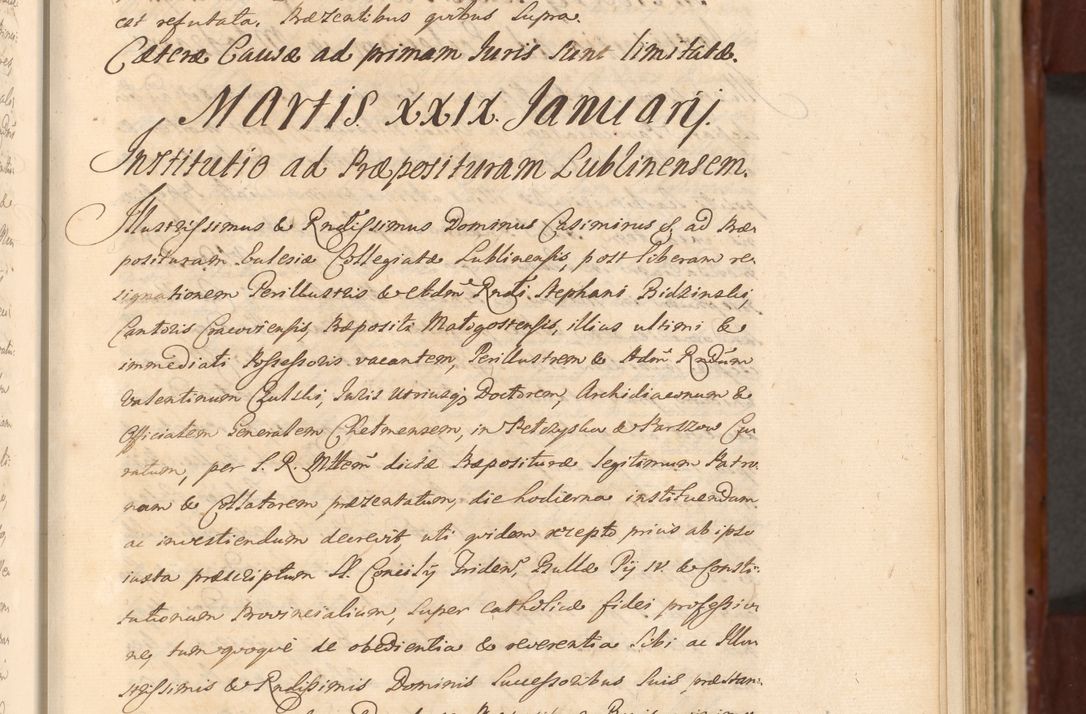 est refutata. Præsentibus quibus supra.
Cæteræ Causæ ad primam Juris sunt limitatæ.
Martis XXIX Januarij.
Institutio ad Præposituram Lublinensem.
Illustrissimus & Rndissimus Dominus Casimirus &, ad Præ-
posituram Eulesiæ Collegiatæ Lublinensis, post liberam re-
signationem Perillustris & Adme Rndi Stephani Bidzinski,
Cantoris Cracoviensis, Præpositi Malogostensis, illius ultimi &
immediati Possessoris vacantem, Perillustrem & Adm Rndum
Valentinum Czulski, Juris utriusq Doctorem, Archidiaconum &
Officialem Generalem Chelmensem, in & Parszow Cu
ratum, per S. R. Mttem dictæ Præposituræ legitimum Patro
num & Collatorem præzentatum, die hodierna instituendum
ac investiendum decrevit, uti quidem recepto prius ab ipso
iuxta præscriptum SS. Concilij Triden, Bullæ Pij IV. & Consti-
tutionum Provincialium, super catholicæ fidei professio
ne, tum quoque de obedientia & reverentia sibi ac Illu
strissimis & Rndissimis Dominis Successoribus suis præstan-